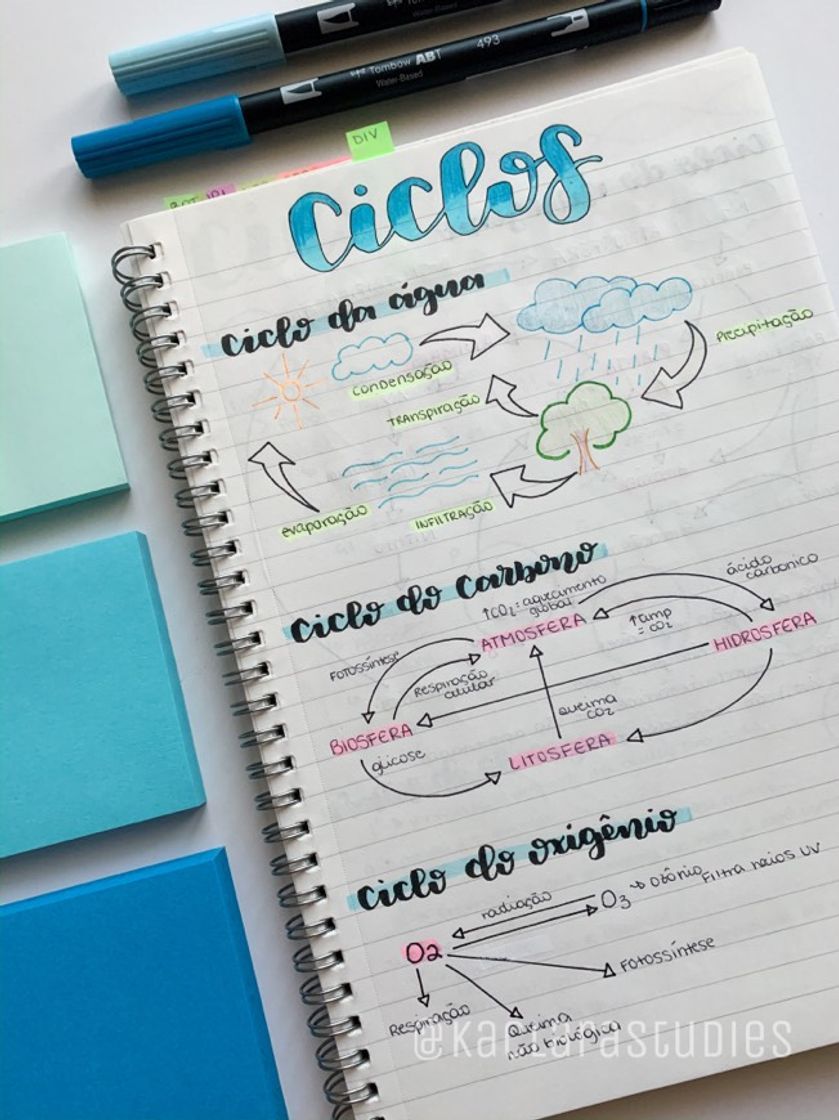 Water-Based
Tombow ABT 493
Water-Based
DIV
Ciclos
Ciclo da água
Condensação
Precipitação
Transpiração
evaporação
Infiltração
Ciclo do Carbono
↑CO₂: aquecimento
global
ácido
carbonico
ATMOSFERA
↑amp
= CO₂
HIDROSFERA
Fotossíntese
Respiração
celular
Queima
CO₂
BIOSFERA
glicose
LITOSFERA
Ciclo do oxigênio
radiação
O₃ → Ozônio Filtra raios UV
O2
Fotossíntese
Respiração
Queima
não biológica
@karlarastudies